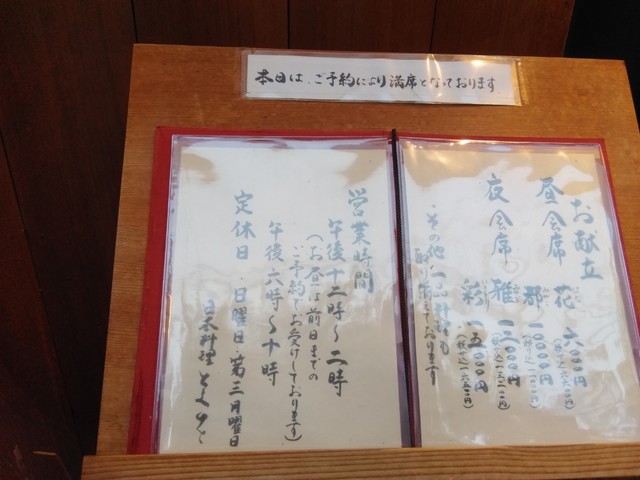 本日は、ご予約により満席となっております
お献立
昼会席 花 六〇〇〇円
郡 一〇〇〇〇円
夜会席 雅 一二〇〇〇円
彩 一五〇〇〇円
その他一品料理も
営業時間
午後十二時〜二時
(お昼は前日までの
ご予約でお受けしております)
午後六時〜十時
定休日 日曜日 第三月曜日
日本料理